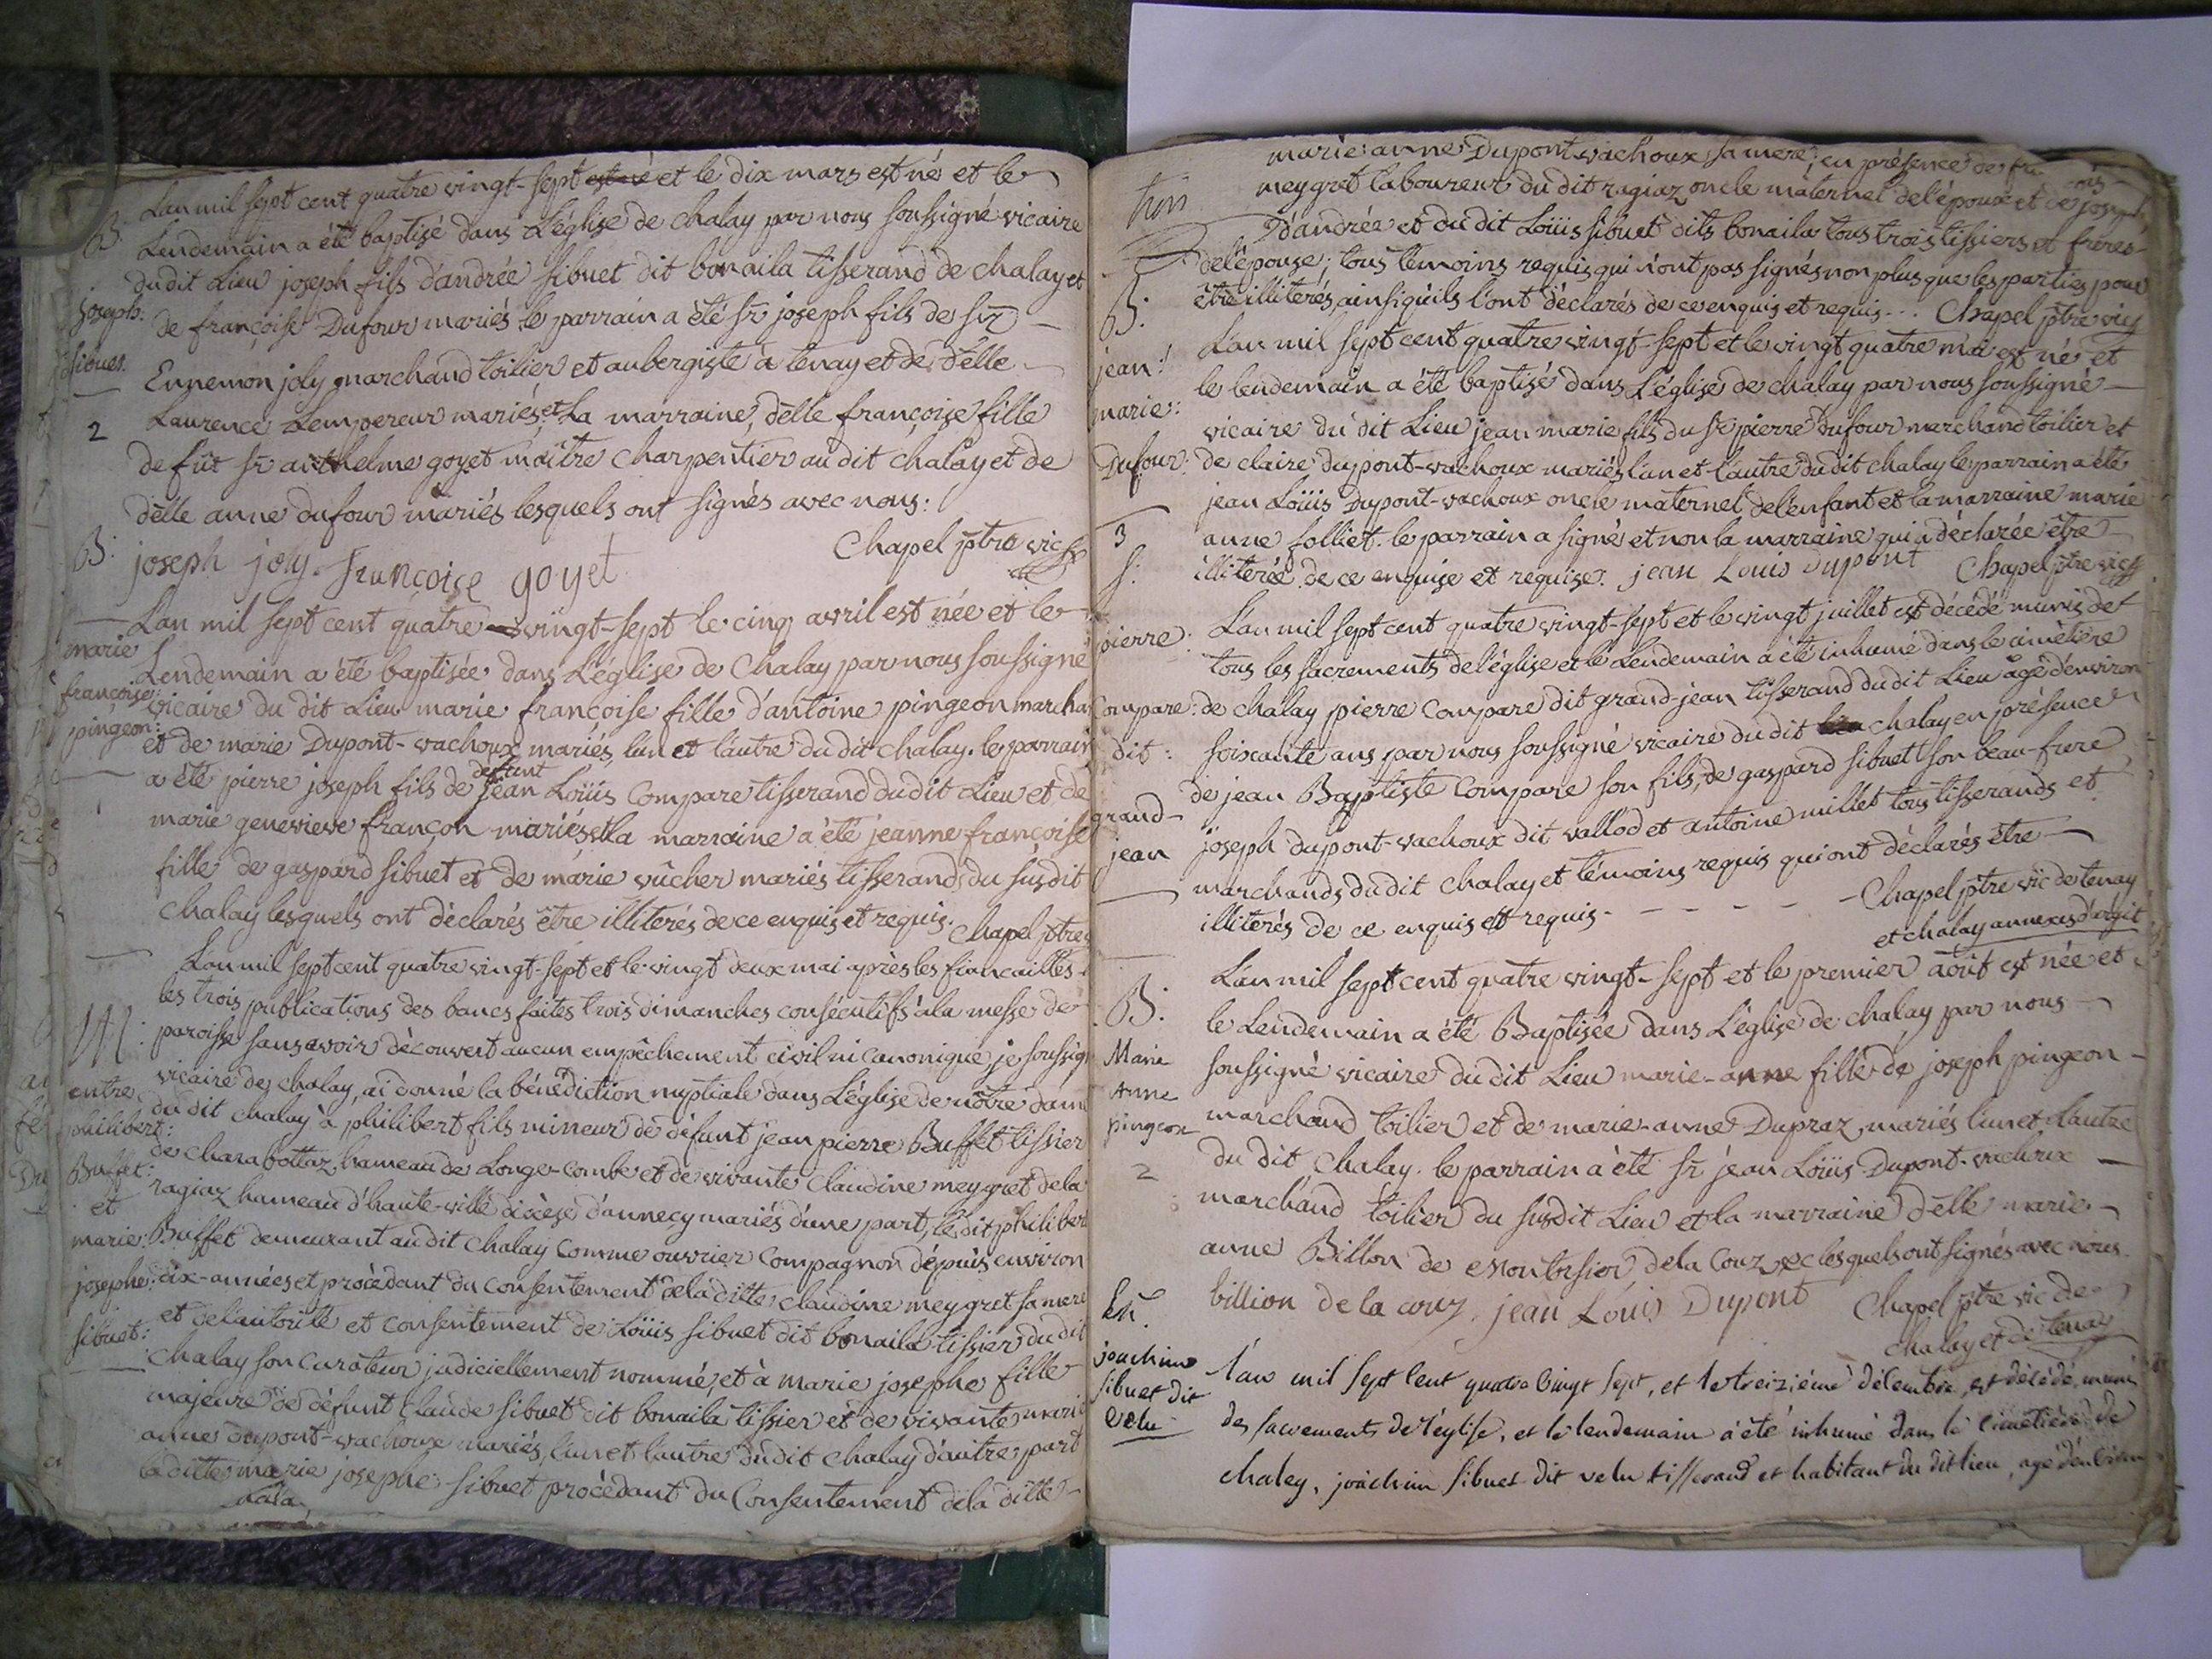 L'an mil sept cent quatre vingt-sept est né et le dix mars est né et le
B. Lendemain a été baptisé dans L'église de chalay par nous soussigné vicaire
du dit Lieu joseph fils d'andrée sibuet dit bonaila tisserand de chalay et
joseph: de françoise Dufour mariés le parrain a été sr joseph fils de sr
sibuet. Ennemon joly marchand toilier et aubergiste à tenay et de delle
2 Laurence Lempereur mariés et La marraine, delle françoise fille
de fût sr anthelme goyet maître charpentier au dit chalay et de
delle anne dufour mariés lesquels ont signés avec nous:
B: joseph joly. françoise goyet Chapel ptre vic
L'an mil sept cent quatre vingt-sept le cinq avril est née et le
marie Lendemain a été baptisée dans L'église de Chalay par nous soussigné
françoise: vicaire du dit Lieu marie françoise fille d'antoine pingeon marcha
pingeon: et de marie Dupont-vachoux mariés, lun et l'autre du dit chalay. le parrain
a été pierre joseph fils de défunt jean Loüis Compare tisserand du dit Lieu et de
marie genevieve françon mariés et la marraine a été jeanne françoise
fille de gaspard sibuet et de marie vûcher mariés tisserands du susdit
Chalay lesquels ont déclarés être illiterés de ce enquis et requis. Chapel ptre
L'an mil sept cent quatre vingt-sept et le vingt deux mai après les fiancailles
les trois publications des bancs faites trois dimanches consécutifs à la messe de
M: paroisse sans avoir découvert aucun empêchement civil ni canonique je soussig
entre vicaire de chalay, ai donné la bénédiction nuptiale dans L'église de nôtre dame
philibert: du dit chalay à philibert fils mineur de défunt jean pierre Buffet tissier
Buffet: de charabottaz hameau de Longe-combe et de vivante Claudine meygret de la
et ragiaz hameau d'haute-ville diocèse d'annecy mariés d'une part, le dit philiber
marie: Buffet demeurant au dit chalay comme ouvrier compagnon dépuis environ
josephe: dix-années et procédant du consentement de la ditte claudine meygret sa mere
sibuet: et de l'autorité et consentement de Loüis sibuet dit bonaila tissier du dit
chalay son curateur judiciellement nommé, et à marie josephe fille
majeure de défunt Claude sibuet dit bonaila tissier et de vivante marie
anne Dupont-vachoux mariés, lun et lautre du dit chalay d'autre part
la ditte marie josephe sibuet procédant du Consentement de la ditte
marie anne Dupont vachoux sa mere; en présence de
meygret laboureur du dit ragiaz oncle maternel de l'époux et de joseph,
D'andrée et du dit Loüis sibuet dits bonaila tous trois tissiers et freres
de l'épouse; tous témoins requis qui n'ont pas signés non plus que les parties pour
être illiterés, ainsi qu'ils l'ont déclarés de ce enquis et requis... Chapel ptre vic
B. L'an mil sept cent quatre vingt-sept et le vingt quatre mai est né et
jean: le lendemain a été baptisé dans L'église de chalay par nous soussigné
marie: vicaire du dit Lieu jean marie fils du sr pierre Dufour marchand toilier et
Dufour: de claire Dupont-vachoux mariés l'un et l'autre du dit chalay le parrain a été
jean Loüis Dupont-vachoux oncle maternel de l'enfant et la marraine marie
3 anne folliet. le parrain a signé et non la marraine qui a déclarée être
S: illiterée de ce enquise et requise. jean Louis Dupont Chapel ptre vic
pierre: L'an mil sept cent quatre vingt-sept et le vingt juillet est décédé munis de
tous les sacrements de l'église et le Lendemain a été inhumé dans le cimetière
Compare: de chalay pierre Compare dit grand-jean tisserand du dit Lieu âgé d'environ
dit: soixante ans par nous soussigné vicaire du dit chalay en présence
grand- de jean Baptiste Compare son fils, de gaspard sibuet son beau-frere
jean joseph dupont-vachoux dit vallod et antoine millet tous tisserands et
marchands du dit Chalay et témoins requis qui ont déclarés être
illiterés de ce enquis et requis - - - - - Chapel ptre vic de tenay
et chalay annexes d'argit
B. L'an mil sept cent quatre vingt-sept et le premier août est née et
le Lendemain a été Baptisée dans L'église de chalay par nous
Marie soussigné vicaire du dit Lieu marie-anne fille de joseph pingeon
Anne marchand toilier et de marie-anne Dupraz, mariés l'un et l'autre
pingeon du dit Chalay. le parrain a été sr jean Loüis Dupont-vachoux
2 marchand toilier du susdit Lieu et la marraine delle marie
anne Billon de Montursier, de la Couz lesquels ont signés avec nous.
billion de la couz. jean Louis Dupont Chapel ptre vic de
chalay et de tenay
joachim L'an mil sept cent quatre vingt sept, et le treizième décembre est décédé, muni
sibuet dit des sacrements de l'église, et le lendemain a été inhumé dans le cimetière de
velu chaley, joachim sibuet dit velu tisserand et habitant du dit lieu, agé d'environ